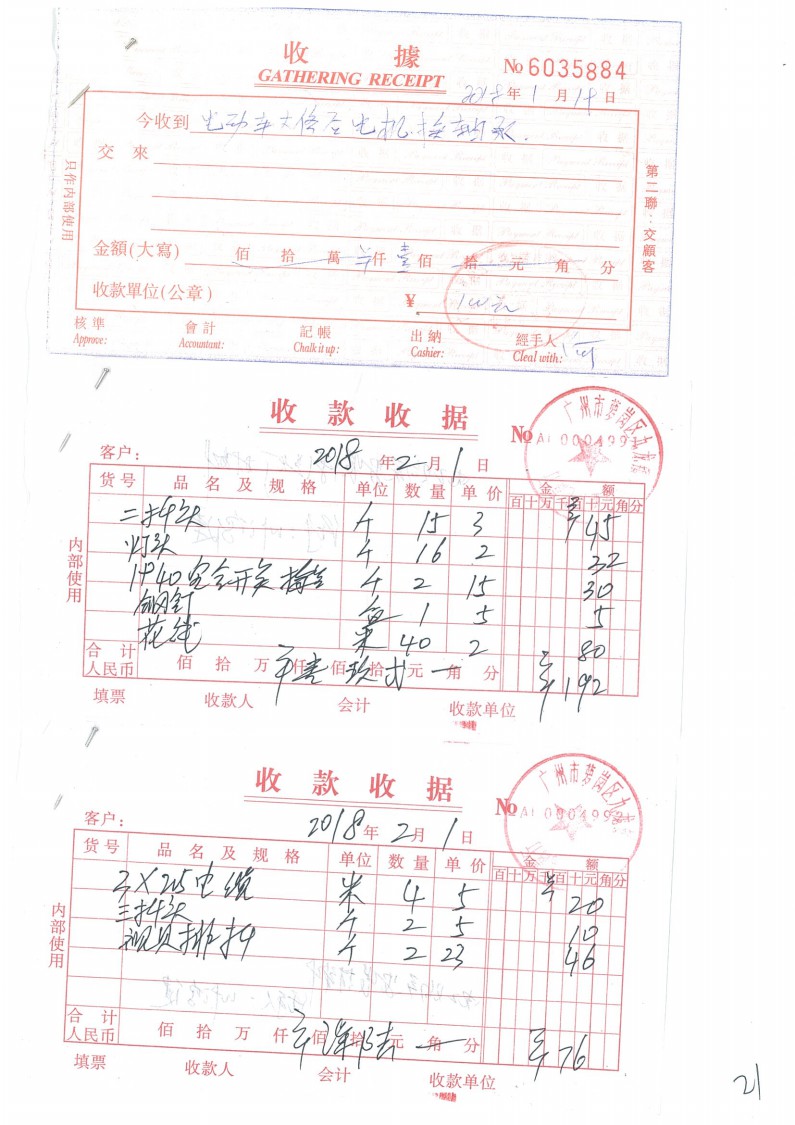 收 據
GATHERING RECEIPT
No 6035884
2018年1月14日
今收到
交 來
換軸承.
只作内部使用
第二聯：交顧客
金額(大寫) 佰 拾 萬 仟壹佰 拾 元 角 分
收款單位(公章) ¥ 100元
核準 會計 記帳 出納 經手人
Approve: Accountant: Chalk it up: Cashier: Cleal with:
收 款 收 据
No A1 0004992
广州市萝岗区九
客户： 2018年2月1日
货号 品 名 及 规 格 单位 数量 单价 金 额
百十万千百十元角分
二扦头 个 15 3 45
灯头 个 16 2 32
开关 个 2 15 30
钢钉 盒 1 5 5
花线 米 40 2 80
内部使用
合 计
人民币 佰 拾 万 仟壹佰玖拾 元 角 分 192
填票 收款人 会计 收款单位
收 款 收 据
No A1 0004992
广州市萝岗区九
客户： 2018年2月1日
货号 品 名 及 规 格 单位 数量 单价 金 额
百十万千百十元角分
3×2.5电缆 米 4 5 20
三扦头 个 2 5 10
排扦 个 2 23 46
内部使用
合 计
人民币 佰 拾 万 仟 佰 拾陆元 角 分 76
填票 收款人 会计 收款单位
21